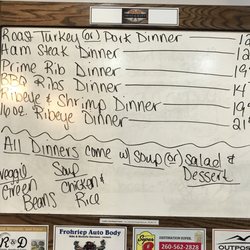 Roast Turkey (or) Pork Dinner — 12
Ham Steak Dinner — 12
Prime Rib Dinner — 19
BBQ Ribs Dinner — 14
Ribeye & Shrimp Dinner — 19
16oz. Ribeye Dinner — 21
All Dinners come w/ Soup (or) Salad &
Dessert
Veggie Soup
Green Chicken &
Beans Rice
R&D
Frohriep Auto Body
Super
260-562-2828
OUTPOS